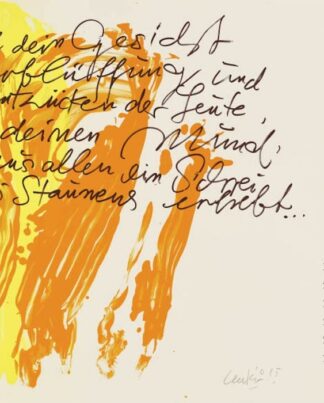 dein Gesicht
rblüffung und
ntzücken der Leute,
deinen Mund,
aus allen ein Schrei
s Staunens erhebt...